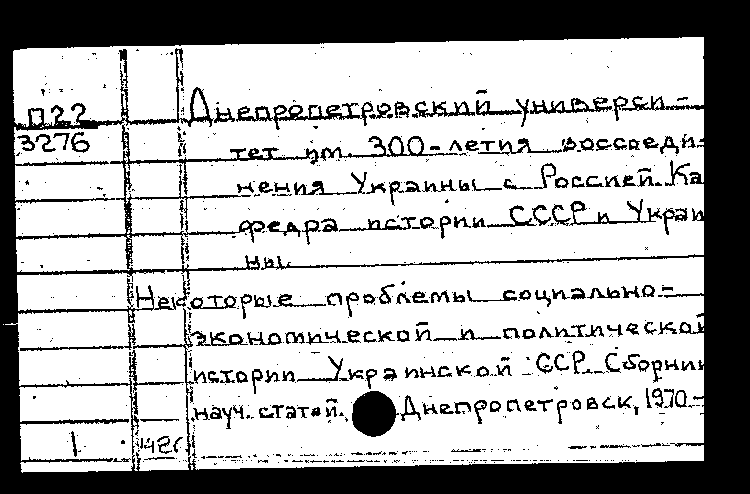 П22
3276
Днепропетровский универси-
тет им. 300-летия воссоеди-
нения Украины с Россией. Ка
федра истории СССР и Украи
ны.
Некоторые проблемы социально-
экономической и политической
истории Украинской ССР. Сборник
науч. статей. Днепропетровск, 1970.-
1